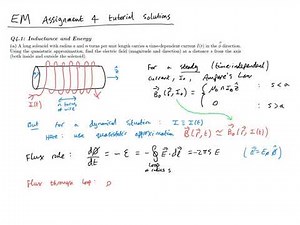 EM Assignment 4 tutorial solutions
Q4.1: Inductance and Energy
(a) A long solenoid with radius a and n turns per unit length carries a time-dependent current I(t) in the φ̂ direction.
Using the quasistatic approximation, find the electric field (magnitude and direction) at a distance s from the axis
(both inside and outside the solenoid).
For a steady (time-independent)
current, I₀, Ampere's Law
B⃗₀(r⃗, I₀) = { μ₀ n I₀ ẑ : s < a
0 : s > a
I(t)
But for a dynamical situation : I = I(t)
Here: use quasistatic approximation B⃗(r⃗,t) ≃ B⃗₀(r⃗, I(t))
Flux rule: dΦ/dt = -ε = -∮ E⃗·dl⃗ = -2πs E (E⃗ = E_φ φ̂)
loop
radius s
Flux through loop: